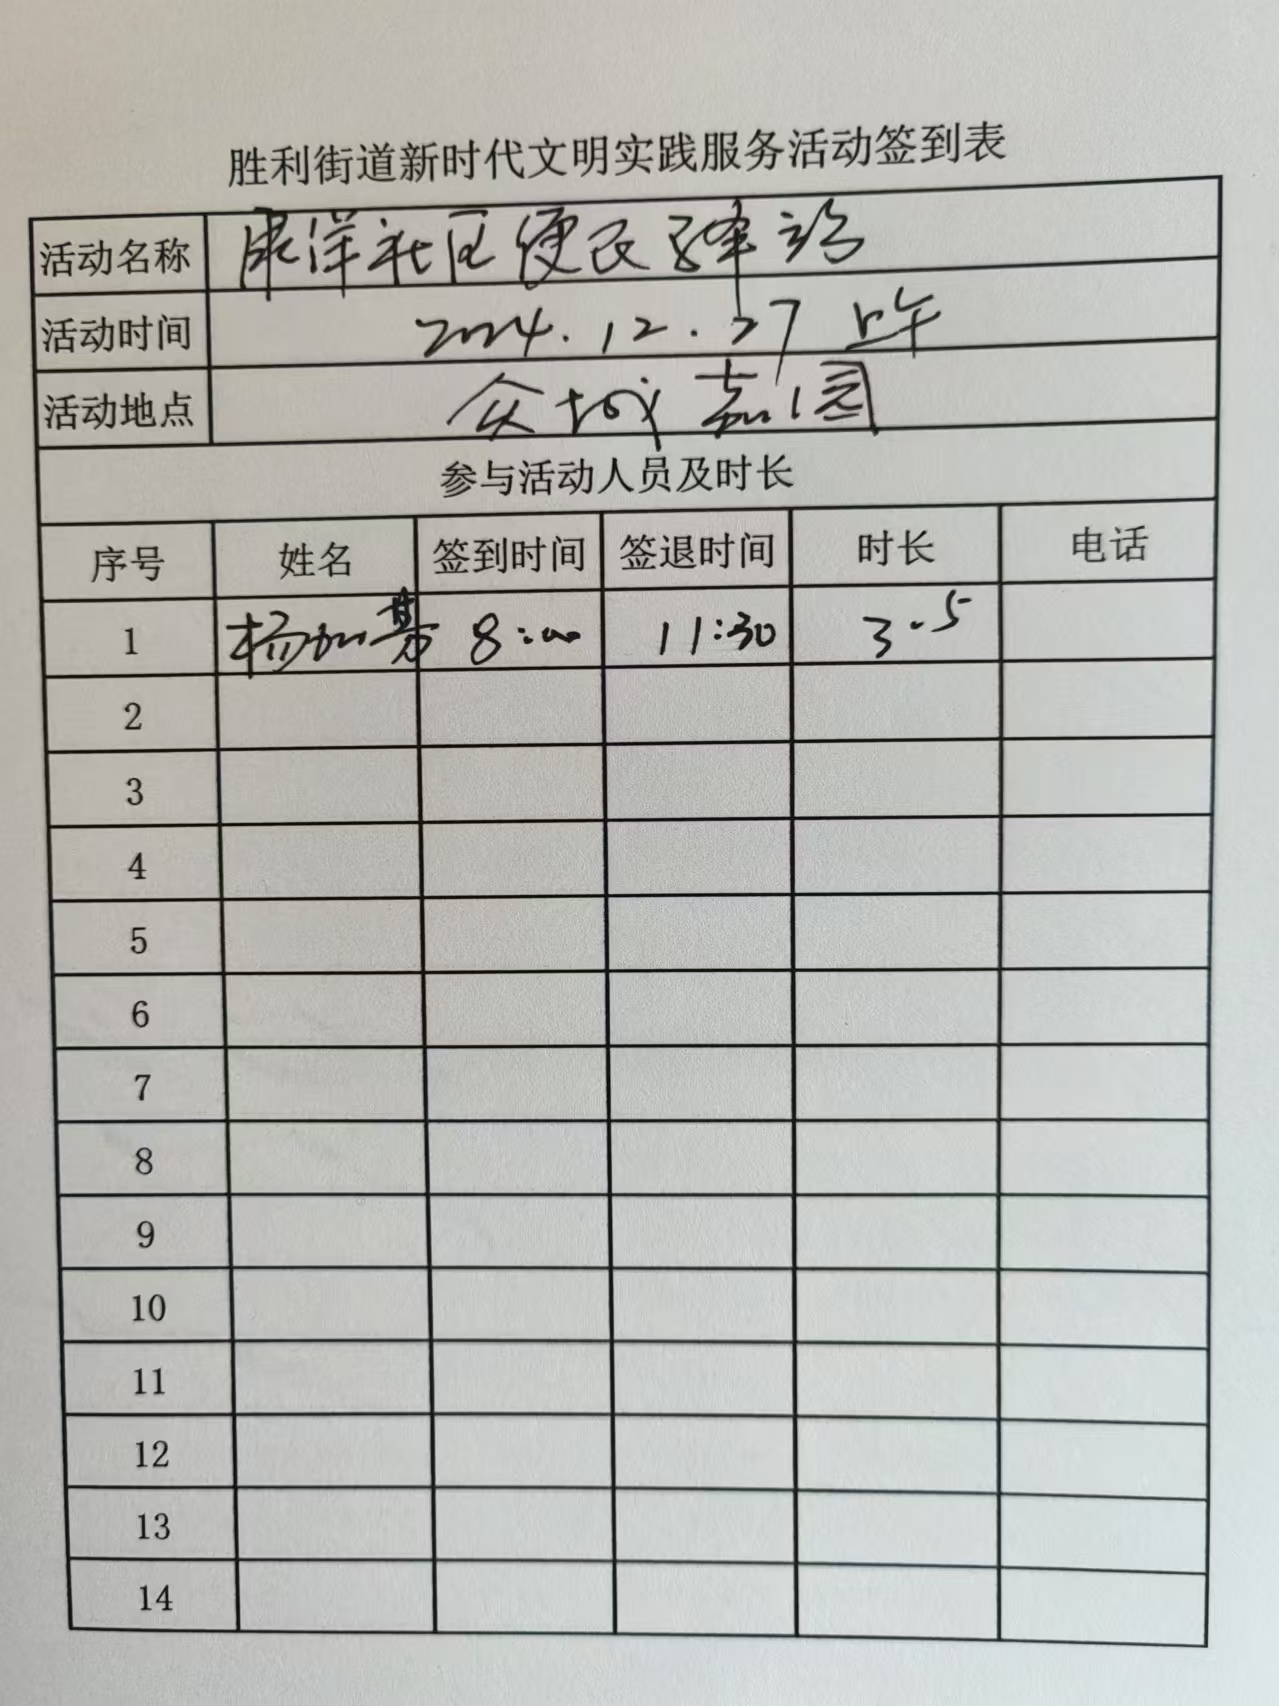 胜利街道新时代文明实践服务活动签到表
活动名称 康洋社区便民驿站
活动时间 2024.12.27 上午
活动地点 众城嘉园
参与活动人员及时长
序号 姓名 签到时间 签退时间 时长 电话
1 杨加 8:00 11:30 3.5
2
3
4
5
6
7
8
9
10
11
12
13
14